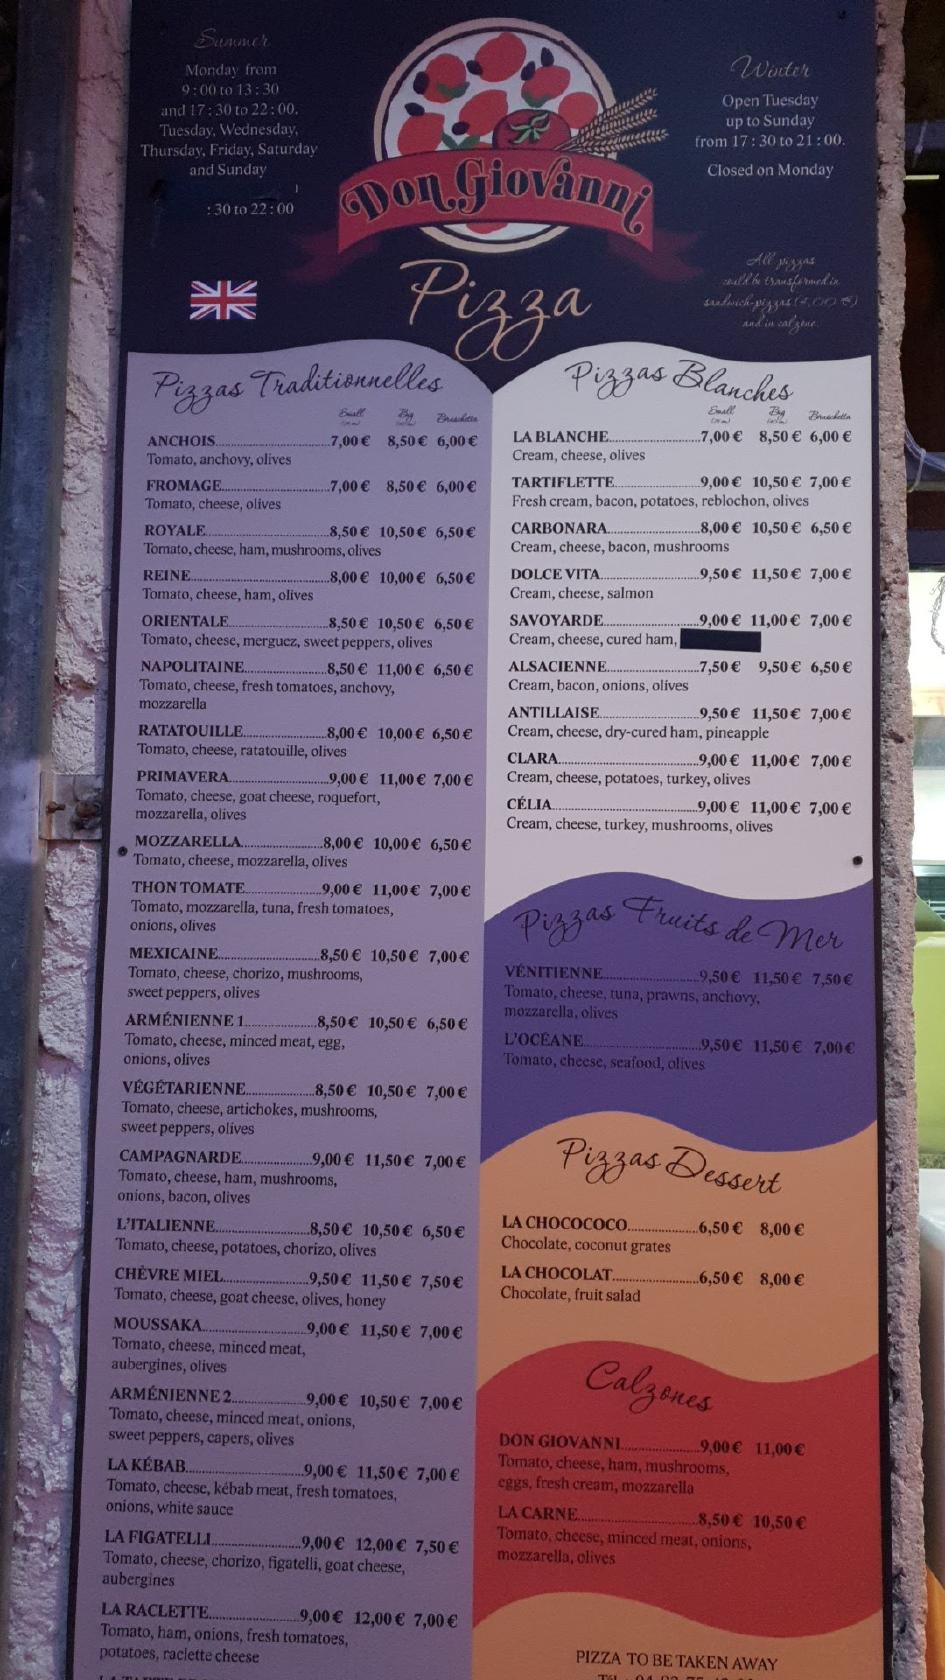 Summer
Monday from
9:00 to 13:30
and 17:30 to 22:00.
Tuesday, Wednesday,
Thursday, Friday, Saturday
and Sunday
:30 to 22:00
Don Giovanni
Pizza
Winter
Open Tuesday
up to Sunday
from 17:30 to 21:00.
Closed on Monday
All pizzas
could be transformed in
sandwich-pizzas
and in calzone
Pizzas Traditionnelles
Small Big Bruschetta
ANCHOIS 7,00 € 8,50 € 6,00 €
Tomato, anchovy, olives
FROMAGE 7,00 € 8,50 € 6,00 €
Tomato, cheese, olives
ROYALE 8,50 € 10,50 € 6,50 €
Tomato, cheese, ham, mushrooms, olives
REINE 8,00 € 10,00 € 6,50 €
Tomato, cheese, ham, olives
ORIENTALE 8,50 € 10,50 € 6,50 €
Tomato, cheese, merguez, sweet peppers, olives
NAPOLITAINE 8,50 € 11,00 € 6,50 €
Tomato, cheese, fresh tomatoes, anchovy,
mozzarella
RATATOUILLE 8,00 € 10,00 € 6,50 €
Tomato, cheese, ratatouille, olives
PRIMAVERA 9,00 € 11,00 € 7,00 €
Tomato, cheese, goat cheese, roquefort,
mozzarella, olives
MOZZARELLA 8,00 € 10,00 € 6,50 €
Tomato, cheese, mozzarella, olives
THON TOMATE 9,00 € 11,00 € 7,00 €
Tomato, mozzarella, tuna, fresh tomatoes,
onions, olives
MEXICAINE 8,50 € 10,50 € 7,00 €
Tomato, cheese, chorizo, mushrooms,
sweet peppers, olives
ARMÉNIENNE 1 8,50 € 10,50 € 6,50 €
Tomato, cheese, minced meat, egg,
onions, olives
VÉGÉTARIENNE 8,50 € 10,50 € 7,00 €
Tomato, cheese, artichokes, mushrooms,
sweet peppers, olives
CAMPAGNARDE 9,00 € 11,50 € 7,00 €
Tomato, cheese, ham, mushrooms,
onions, bacon, olives
L'ITALIENNE 8,50 € 10,50 € 6,50 €
Tomato, cheese, potatoes, chorizo, olives
CHÈVRE MIEL 9,50 € 11,50 € 7,50 €
Tomato, cheese, goat cheese, olives, honey
MOUSSAKA 9,00 € 11,50 € 7,00 €
Tomato, cheese, minced meat,
aubergines, olives
ARMÉNIENNE 2 9,00 € 10,50 € 7,00 €
Tomato, cheese, minced meat, onions,
sweet peppers, capers, olives
LA KÉBAB 9,00 € 11,50 € 7,00 €
Tomato, cheese, kébab meat, fresh tomatoes,
onions, white sauce
LA FIGATELLI 9,00 € 12,00 € 7,50 €
Tomato, cheese, chorizo, figatelli, goat cheese,
aubergines
LA RACLETTE 9,00 € 12,00 € 7,00 €
Tomato, ham, onions, fresh tomatoes,
potatoes, raclette cheese
Pizzas Blanches
Small Big Bruschetta
LA BLANCHE 7,00 € 8,50 € 6,00 €
Cream, cheese, olives
TARTIFLETTE 9,00 € 10,50 € 7,00 €
Fresh cream, bacon, potatoes, reblochon, olives
CARBONARA 8,00 € 10,50 € 6,50 €
Cream, cheese, bacon, mushrooms
DOLCE VITA 9,50 € 11,50 € 7,00 €
Cream, cheese, salmon
SAVOYARDE 9,00 € 11,00 € 7,00 €
Cream, cheese, cured ham,
ALSACIENNE 7,50 € 9,50 € 6,50 €
Cream, bacon, onions, olives
ANTILLAISE 9,50 € 11,50 € 7,00 €
Cream, cheese, dry-cured ham, pineapple
CLARA 9,00 € 11,00 € 7,00 €
Cream, cheese, potatoes, turkey, olives
CÉLIA 9,00 € 11,00 € 7,00 €
Cream, cheese, turkey, mushrooms, olives
Pizzas Fruits de Mer
VÉNITIENNE 9,50 € 11,50 € 7,50 €
Tomato, cheese, tuna, prawns, anchovy,
mozzarella, olives
L'OCÉANE 9,50 € 11,50 € 7,00 €
Tomato, cheese, seafood, olives
Pizzas Dessert
LA CHOCOCOCO 6,50 € 8,00 €
Chocolate, coconut grates
LA CHOCOLAT 6,50 € 8,00 €
Chocolate, fruit salad
Calzones
DON GIOVANNI 9,00 € 11,00 €
Tomato, cheese, ham, mushrooms,
eggs, fresh cream, mozzarella
LA CARNE 8,50 € 10,50 €
Tomato, cheese, minced meat, onions,
mozzarella, olives
PIZZA TO BE TAKEN AWAY